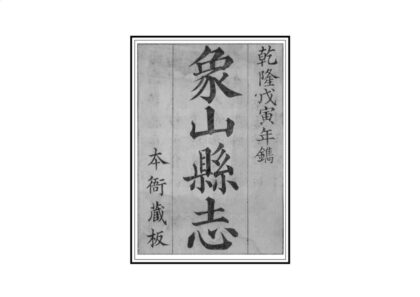 乾隆戊寅年鐫
象山縣志
本衙藏板